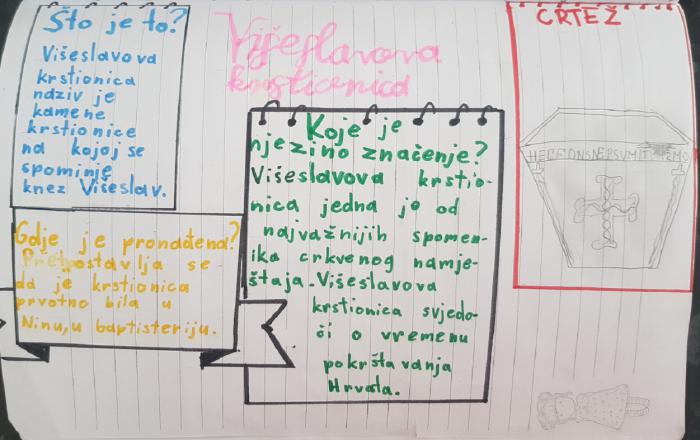 Višeslavova
krstionica
Što je to?
Višeslavova
krstionica
naziv je
kamene
krstionice
na kojoj se
spominje
knez Višeslav.
Gdje je pronađena?
Pretpostavlja se
da je krstionica
prvotno bila u
Ninu, u baptisteriju.
Koje je
njezino značenje?
Višeslavova krstio-
nica jedna je od
najvažnijih spomen-
ika crkvenog namje-
štaja. Višeslavova
krstionica svjedo-
či o vremenu
pokrštavanja
Hrvata.
CRTEŽ